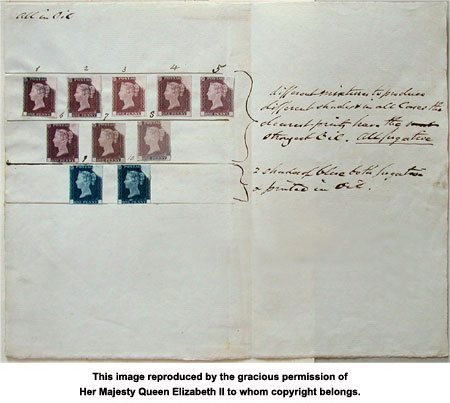 All in Oil
1 2 3 4 5
6 7 8
9 10
different mixtures to produce
different shades & in all Cases the
clearest prints have the
strongest Oil. All fugitive
2 shades of blue both fugitive
& printed in Oil.
This image reproduced by the gracious permission of
Her Majesty Queen Elizabeth II to whom copyright belongs.